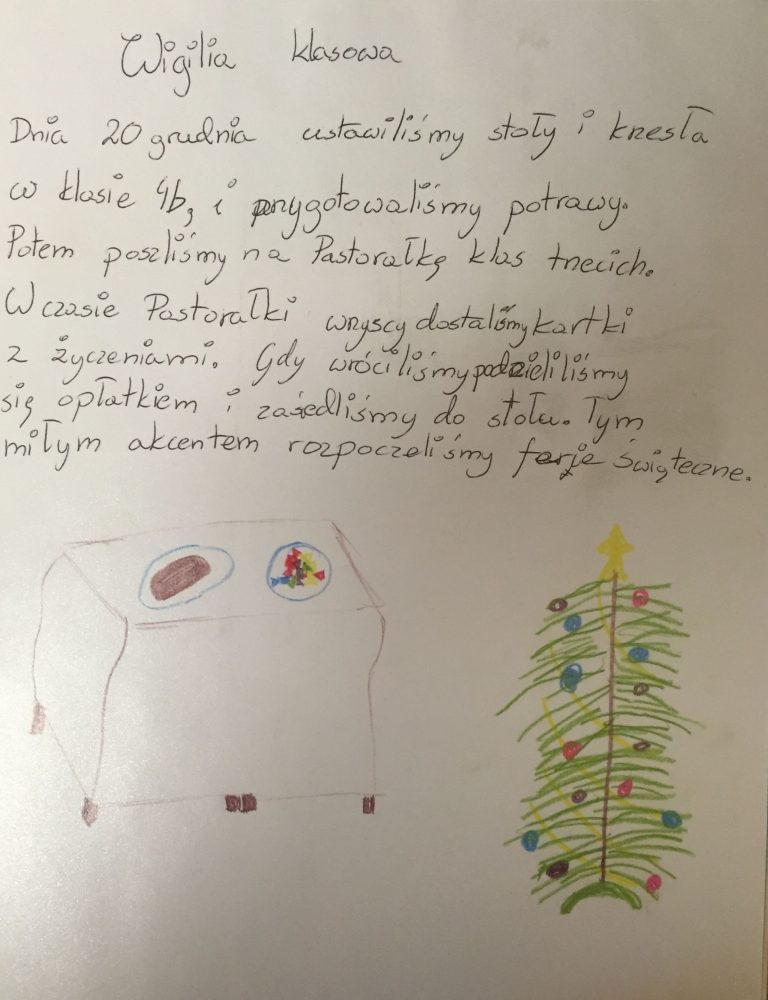 Wigilia klasowa
Dnia 20 grudnia ustawiliśmy stoły i krzesła
w klasie 4b, i przygotowaliśmy potrawy.
Potem poszliśmy na Pastorałkę klas trzecich.
W czasie Pastorałki wrzyscy dostaliśmy kartki
z życzeniami. Gdy wróciliśmy podzieliliśmy
się opłatkiem i zasiedliśmy do stołu. Tym
miłym akcentem rozpoczeliśmy ferje świąteczne.